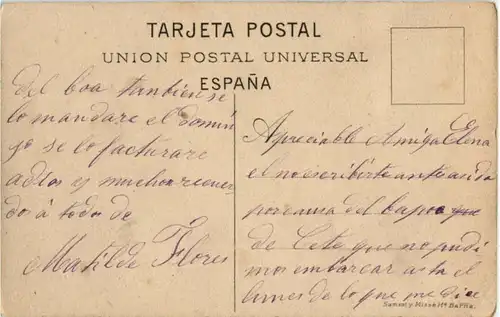 TARJETA POSTAL
UNION POSTAL UNIVERSAL
ESPAÑA
Apreciable Amiga Elena
el no escribirte antes a sido
por causa del bapor que
de Cete que no pudi
mos embarcar asta el
lunes de lo que me dice
del boa tanbien se
lo mandare el domin
go se lo facturare
adios y muchos recuer
dos à todos de
Matilde Flores